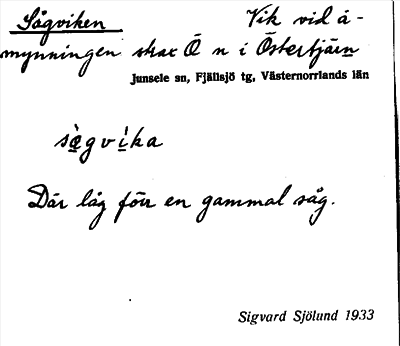 Sågviken Vik vid å-
mynningen strax Ö n i Östertjärn
Junsele sn, Fjällsjö tg, Västernorrlands län
sàgvika
Där låg förr en gammal såg.
Sigvard Sjölund 1933